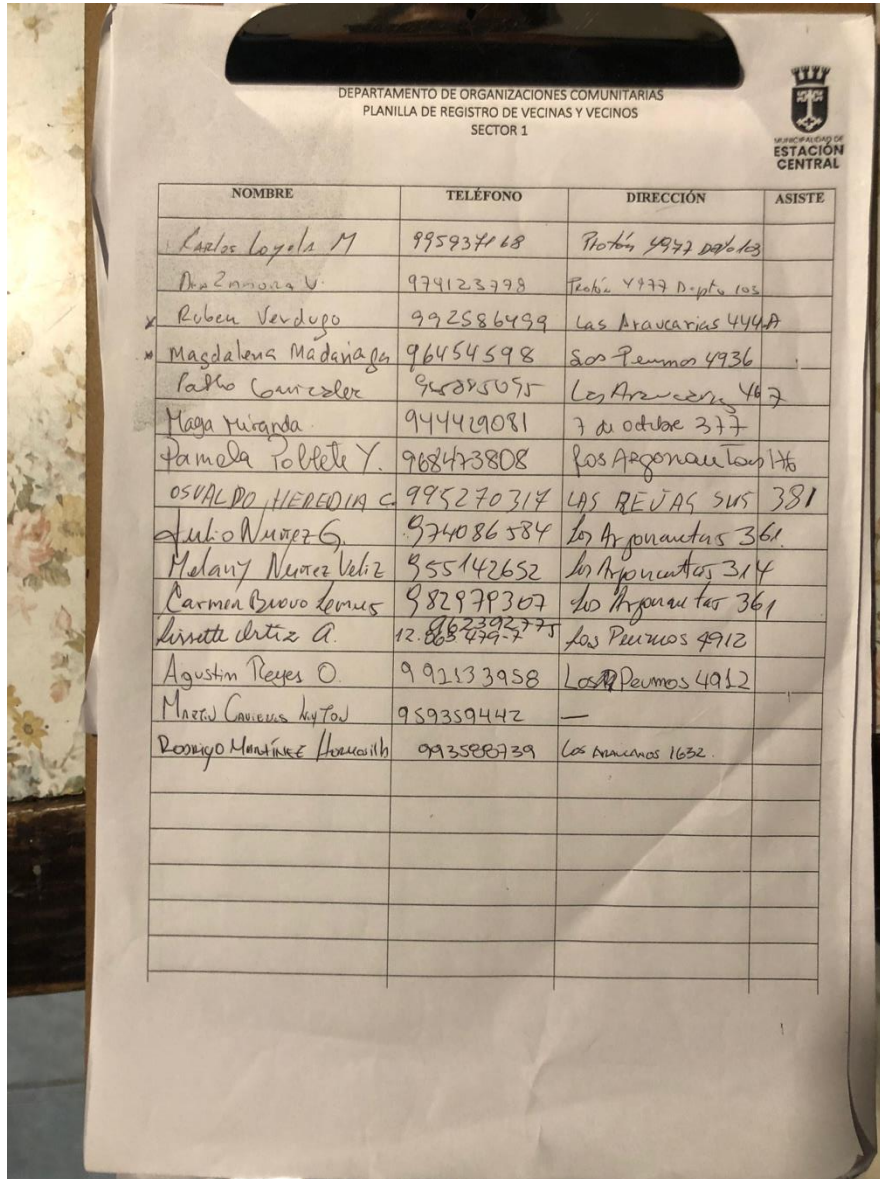 DEPARTAMENTO DE ORGANIZACIONES COMUNITARIAS
PLANILLA DE REGISTRO DE VECINAS Y VECINOS
SECTOR 1
MUNICIPALIDAD DE
ESTACIÓN
CENTRAL
NOMBRE TELÉFONO DIRECCIÓN ASISTE
Carlos Loyola M 4977
974123778 4977 Depto 105
x Ruben Verdugo 992586499 Las Araucarias 444A
x Magdalena Madariaga 96454598 Los Peumos 4936
Pablo Gonzalez 467
Maga Miranda 944429081 7 de octubre 377
Pamela Poblete Y. 968473808 Los Argonautas
OSVALDO HEREDIA C. 995270317 LAS REJAS SUR 381
Julio Nuñez G. 974086584 Los Argonautas 361.
Melany Nuñez Veliz 955142652 Los Argonautas 314
Carmen Bravo Lemus 982979307 Los Argonautas 361
962392775
Lissette Ortiz A. 12.863479-7 Los Peumos 4912
Agustin Reyes O. 992133958 Los Peumos 4912
959359442 —
Rodrigo Martínez 993588739 Los 1632.